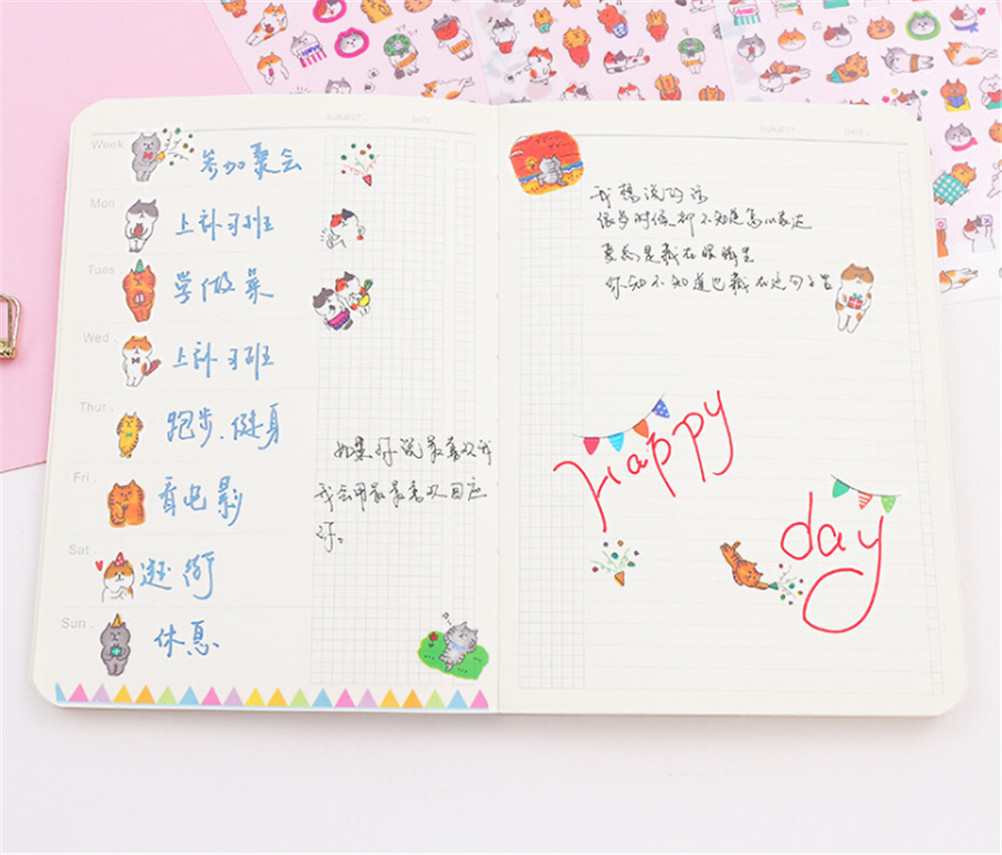 SUBJECT.
DATE.
Week
参加聚会
Mon.
上补习班
Tues.
学做菜
Wed.
上补习班
Thur.
跑步.健身
Fri.
看电影
Sat.
逛街
Sun.
休息
如果你说最喜欢我
我会用最最喜欢回应
你。
SUBJECT.
DATE.
我想说的话
很多时候却不知道怎么表达
要么是藏在眼睛里
你知不知道也藏在这句子里
Happy
day